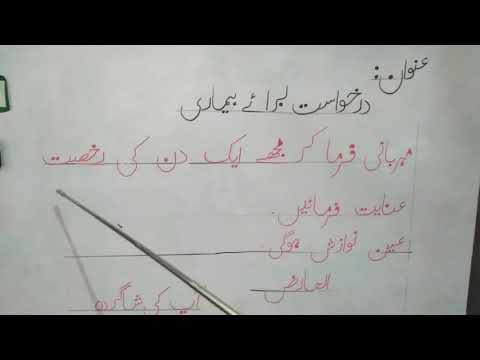 عنوان:
درخواست برائے بیماری
مہربانی فرما کر مجھے ایک دن کی رخصت
عنایت فرمائیں۔
عین نوازش ہوگی۔
العارض
آپ کی شاگردہ